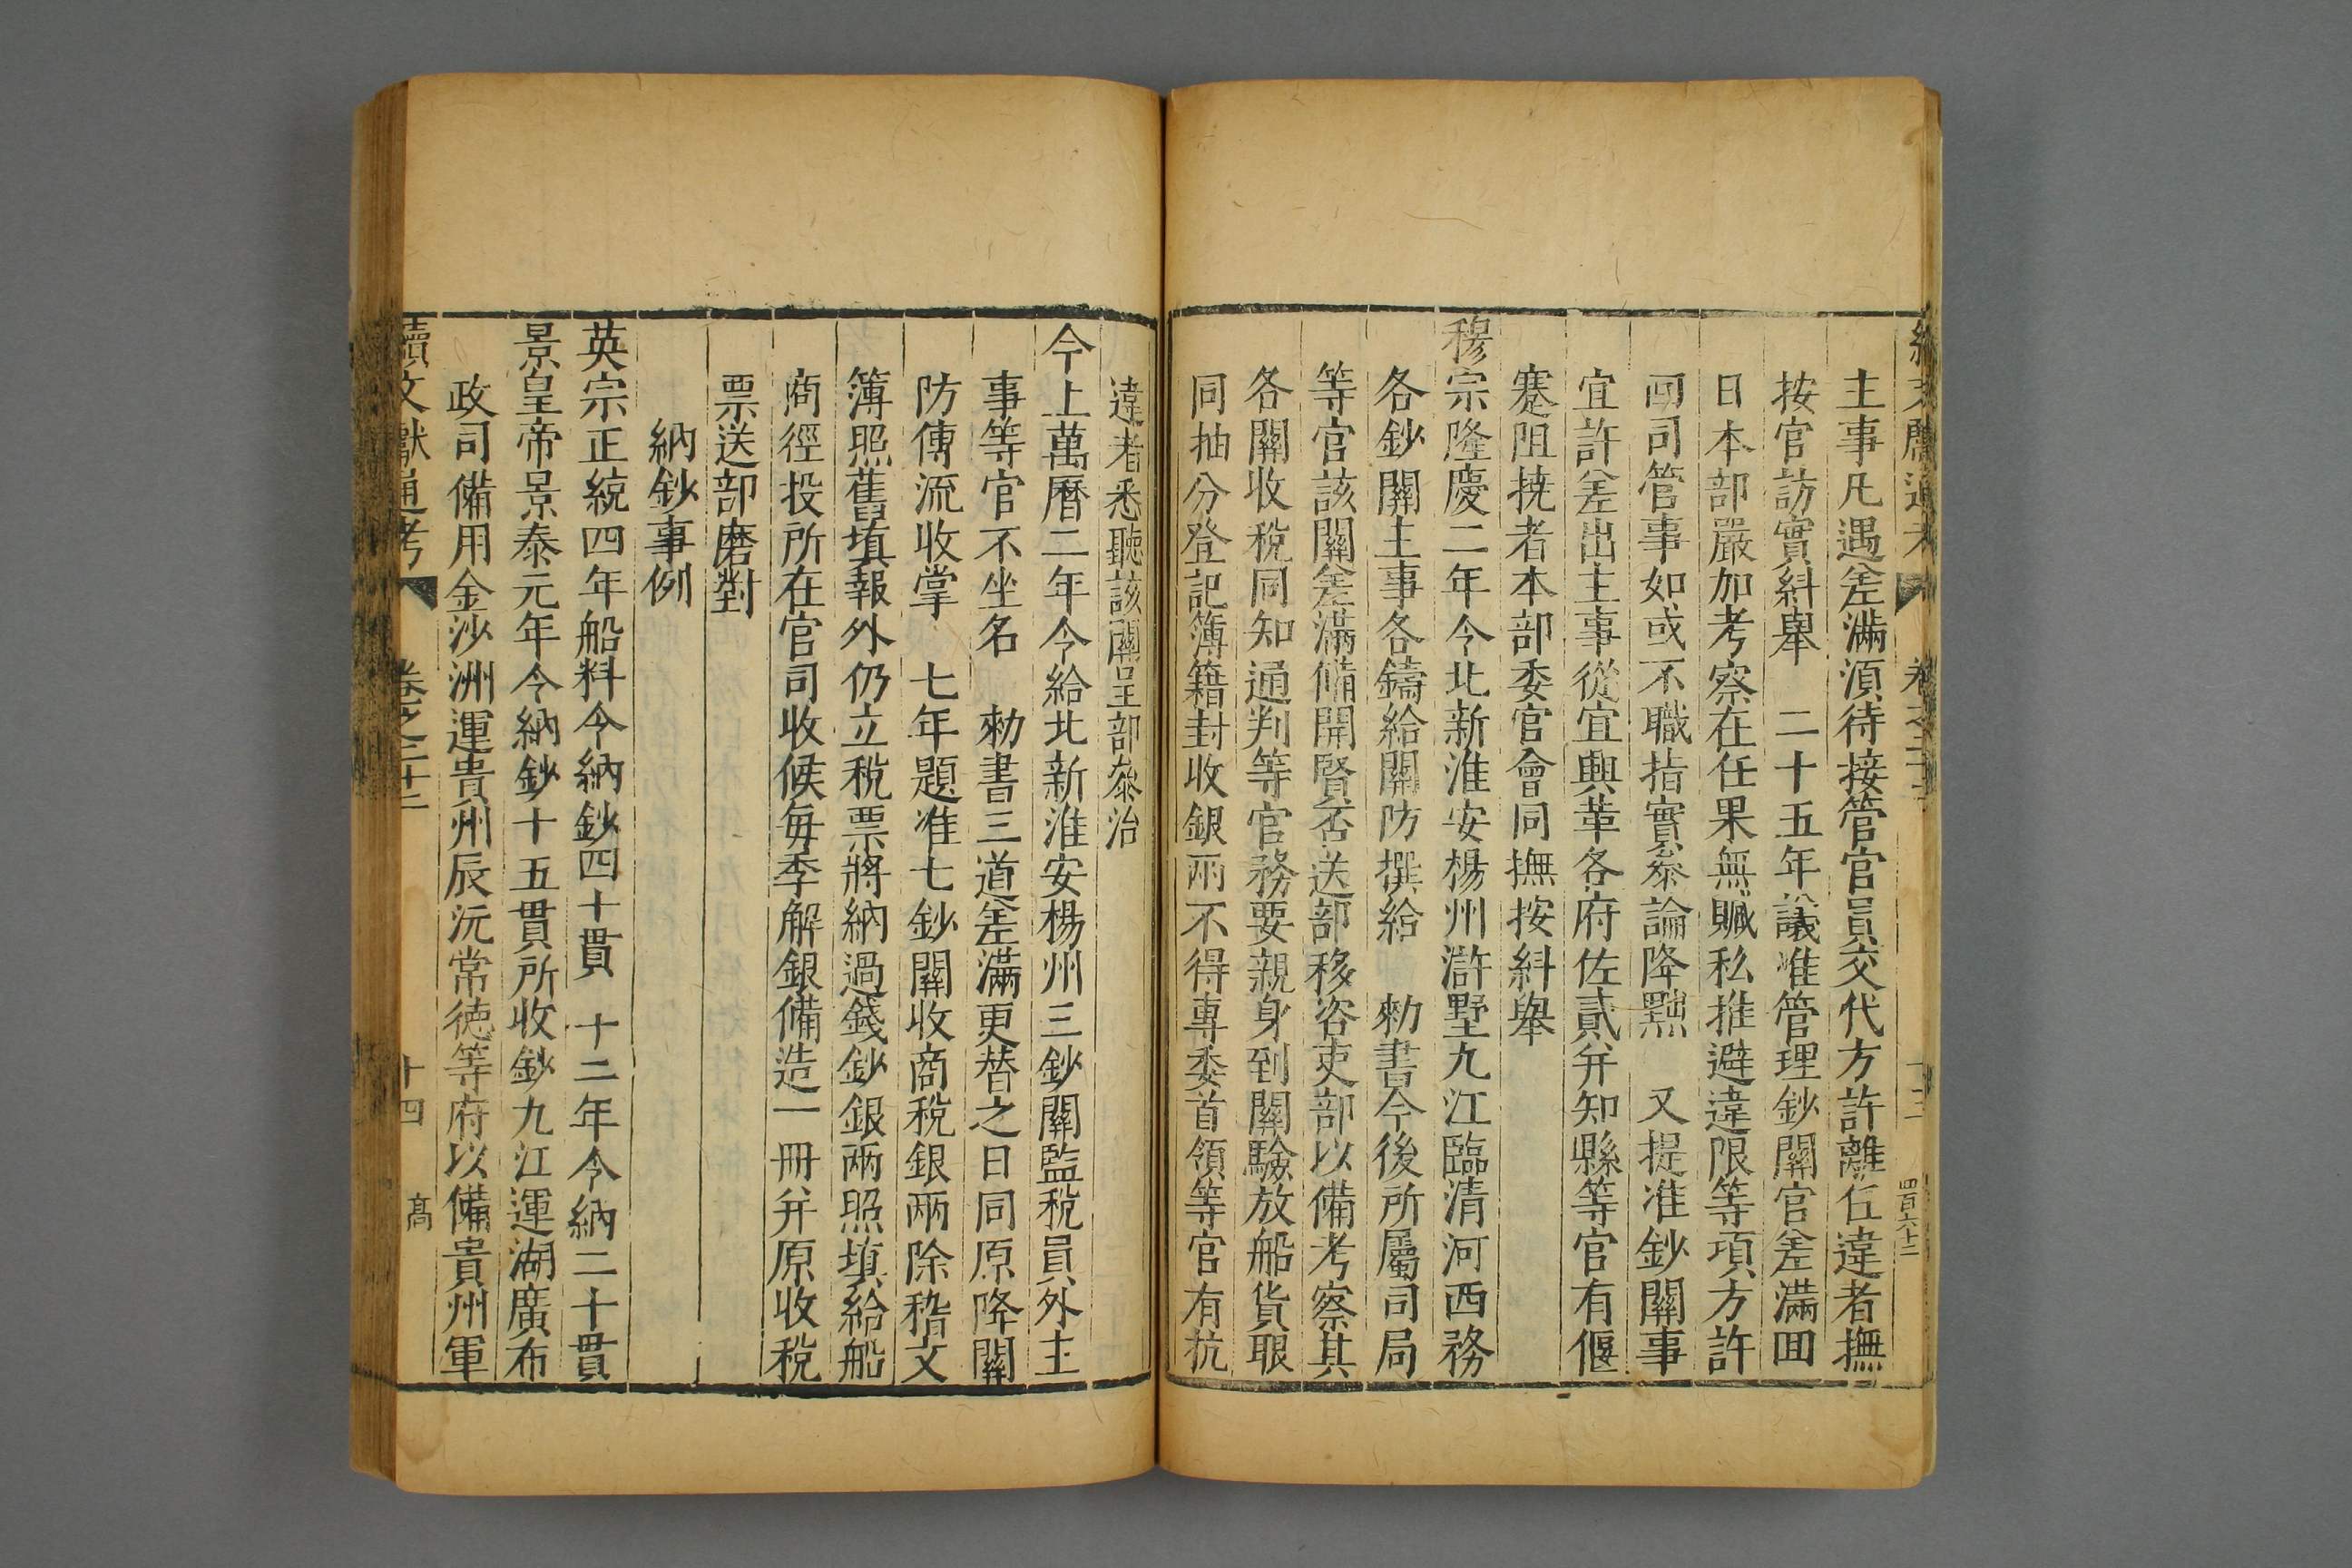 主事凡遇差滿湏待接管官員交代方許離任違者撫
按官訪實糾舉　二十五年議准管理鈔關官差滿囬
日本部嚴加考察在任果無贓私推避違限等項方許
囬司管事如或不職指實叅論降黜　又提准鈔關事
宜許差出主事從宜興革各府佐貳并知縣等官有偃
蹇阻撓者本部委官會同撫按糾舉
穆宗隆慶二年令北新淮安楊州滸墅九江臨清河西務
各鈔關主事各鑄給關防撰給　勑書今後所屬司局
等官該關差滿備開賢否送部移咨吏部以備考察其
各關收稅同知通判等官務要親身到關驗放船貨眼
同抽分登記簿籍封收銀兩不得專委首領等官有抗
違者悉聽該關呈部叅治
今上萬曆二年令給北新淮安楊州三鈔關監稅員外主
事等官不坐名　勑書三道差滿更替之日同原降關
防傳流收掌　七年題准七鈔關收商稅銀兩除稽文
簿照舊填報外仍立稅票將納過錢鈔銀兩照填給船
商徑投所在官司收候每季解銀備造一冊并原收稅
票送部磨對
納鈔事例
英宗正統四年船料令納鈔四十貫　十二年令納二十貫
景皇帝景泰元年令納鈔十五貫所收鈔九江運湖廣布
政司備用金沙洲運貴州辰沅常德等府以備貴州軍
續文獻通考　卷之三十二　十四　高